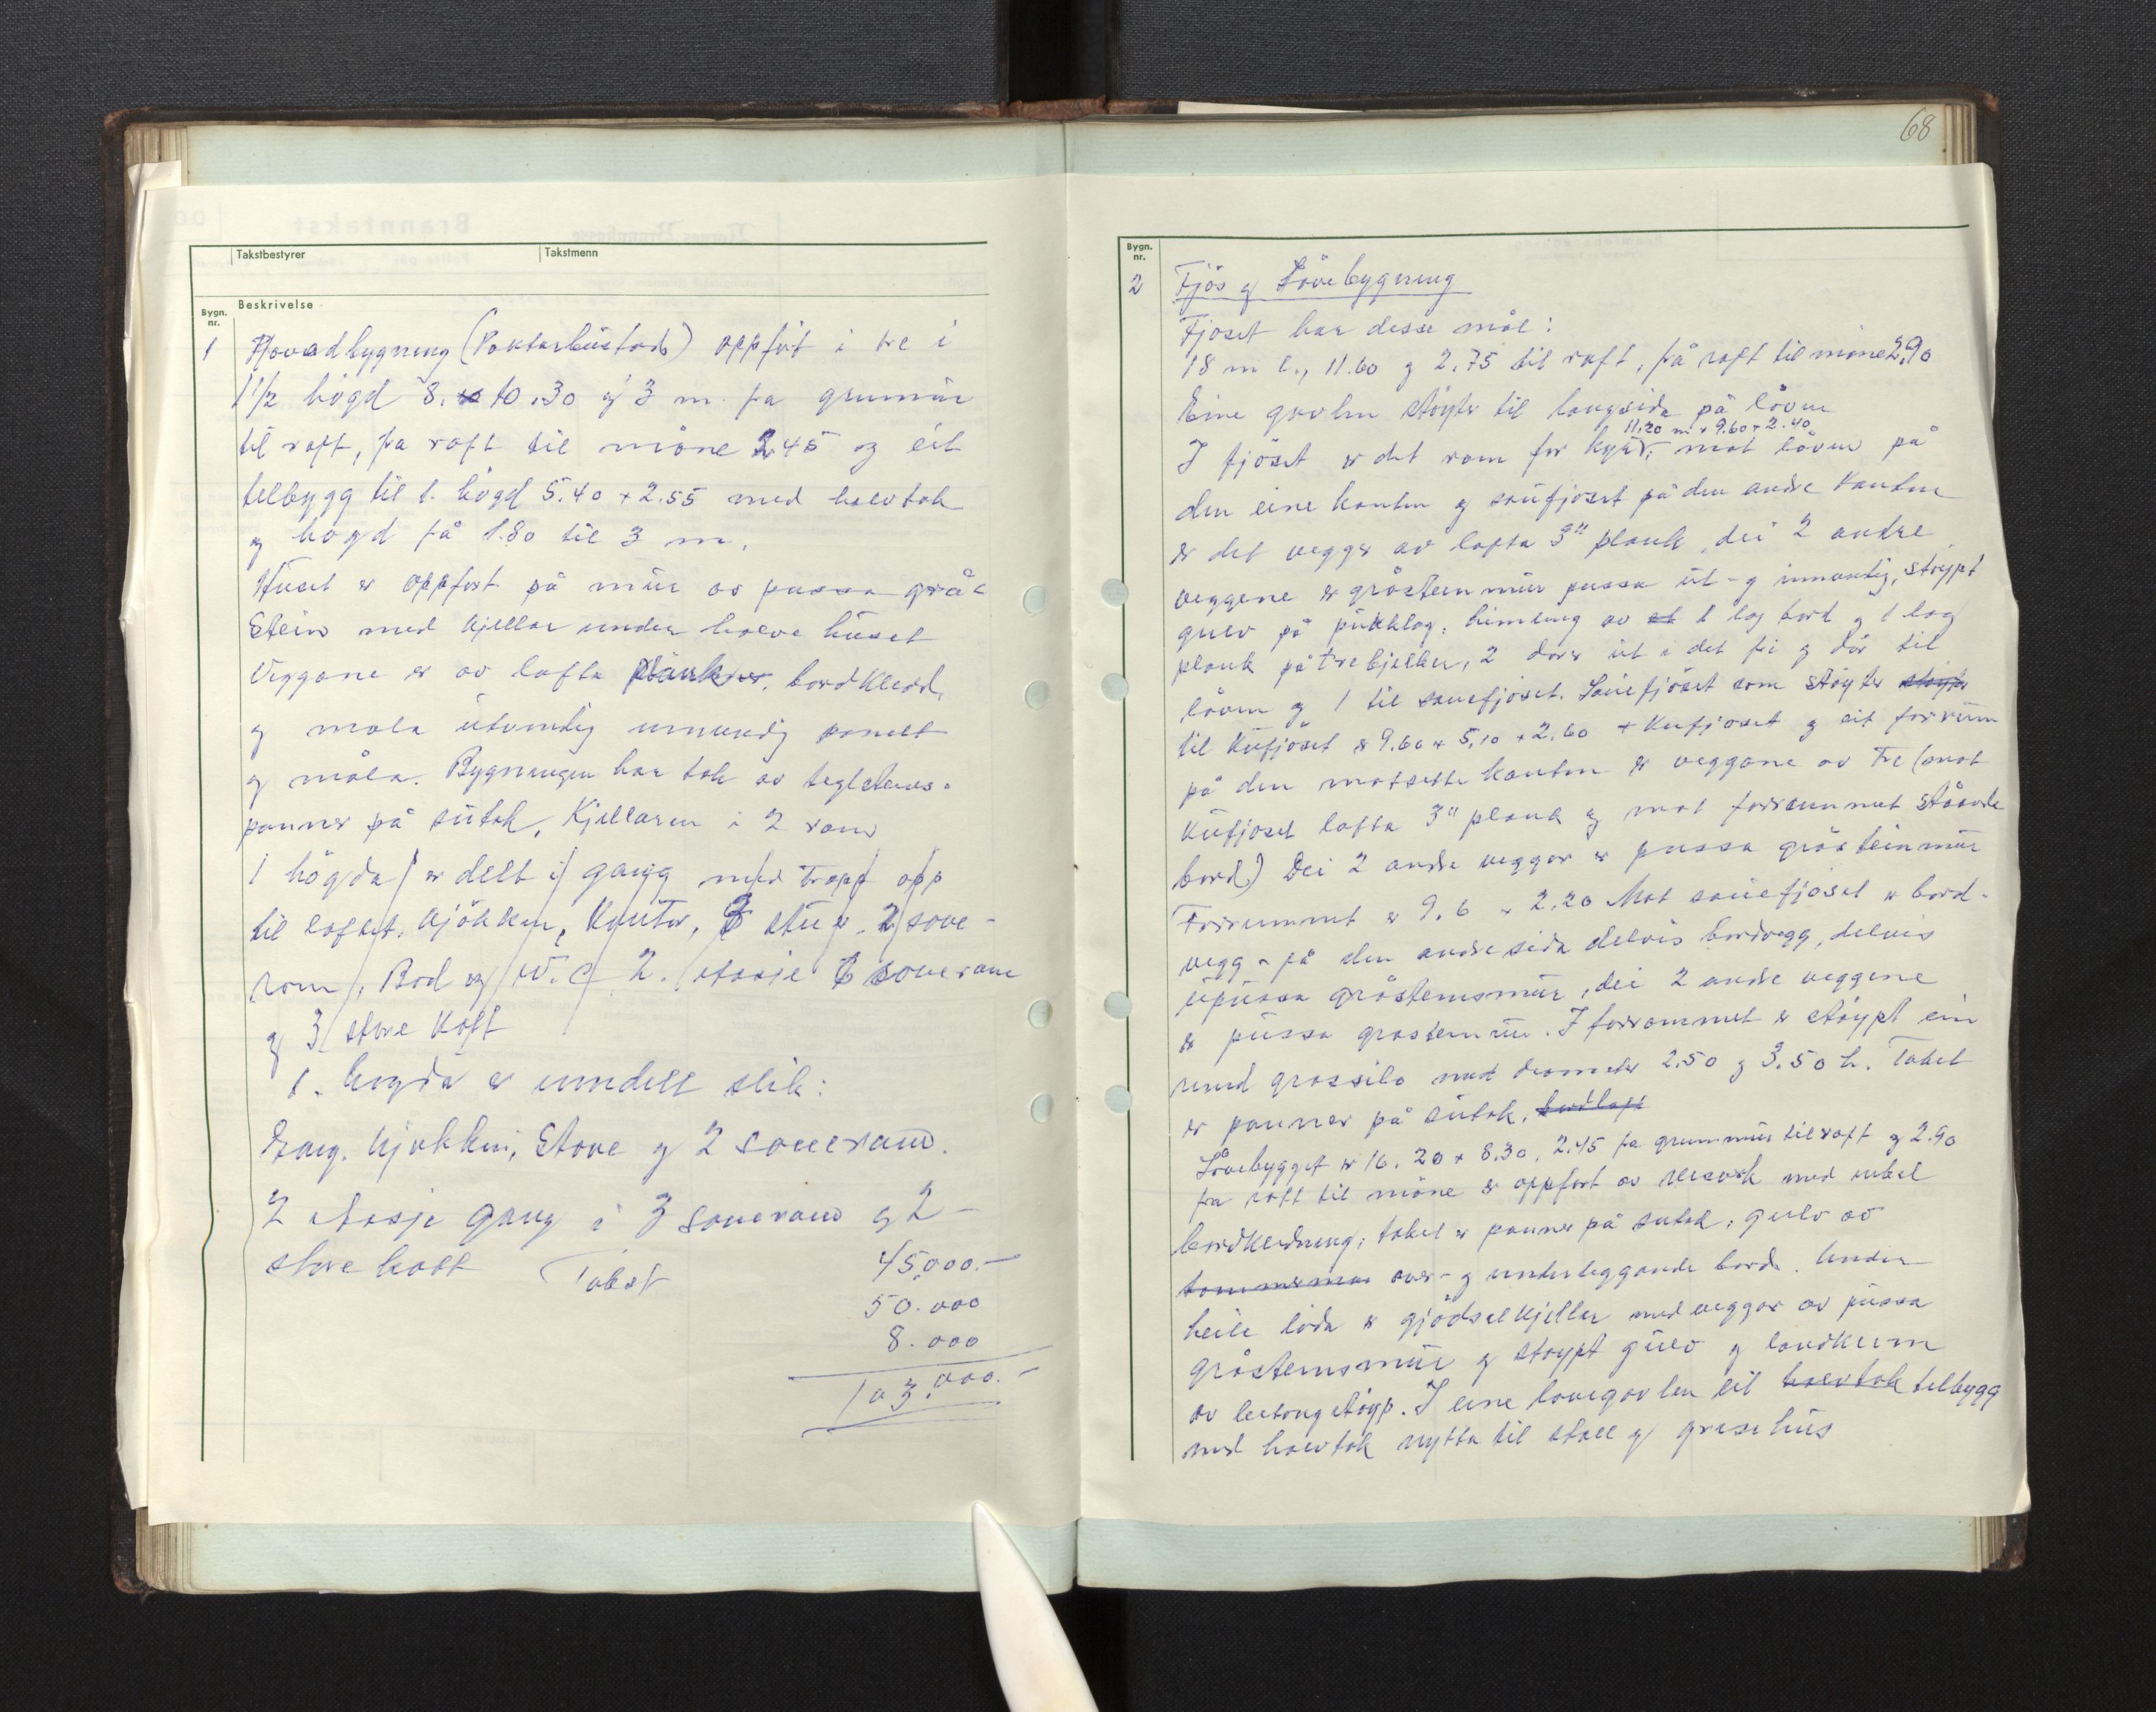 68
Takstbestyrer
Takstmenn
Beskrivelse
Bygn. nr.
1 Hovadbygning (Paktarbustad) oppført i tre i
1 1/2 høgd 8. x 10.30 og 3 m. fra grunmur
til raft, fra raft til møne 2.45 og eit
tilbygg til 1. høgd 5.40 x 2.55 med halvtak
og høgd på 1.80 til 3 m.
Huset er oppført på mur av pussa grå-
stein med kjellar under halve huset
Veggane er av lafta plank, bordkledd,
og mala utvendig innvendig panelt
og måla. Bygningen har tak av teglsteins-
panner på sutak, Kjellaren i 2 rom
1 høgda er delt i gang med trapp opp
til loftet, kjøkken, kontor, 3 stuer, 2 sove-
rom, Bod og W.C 2. etasje 6 soverom
og 3 store kott
1. høgda er inndelt slik:
Gang, kjøkken, Stove og 2 soverom.
2 etasje gang i 3 soverom og 2
store kott Takst 45.000.-
50.000
8.000
103.000.-
Bygn. nr.
2 Fjøs og Løvebygning
Fjøset har desse mål:
18 m l., 11.60 og 2.75 til raft, frå raft til møne 2.90
Eine gavlen støyter til langsida på løven
11.20 m x 9.60 x 2.40
I fjøset er det rom for kyr, mot løven på
den eine kanten og saufjøset på den andre kanten
er det vegger av lafta 3" plank, dei 2 andre
veggene er gråsteinmur pussa ut- og innvendig, støypt
gulv på pukklag, himling av 1 lag bord og 1 lag
plank på trebjelker, 2 dører ut i det fri og dør til
løven og 1 til sauefjøset. Sauefjøset som støyter støyter
til Kufjøset er 9.60 x 5.10 x 2.60 + Kufjøset og eit forrum
på den motsette kanten er veggane av tre (mot
Kufjøset lafta 3" plank og mot forrummet ståande
bord) Dei 2 andre vegger er pussa gråsteinmur
Forrummet er 9.6 x 2.20 Mot sauefjøset er bord-
vegg - på den andre sida delvis bordvegg, delvis
upussa gråsteinsmur, dei 2 andre veggene
er pussa gråsteinmur. I forrommet er støypt ein
rund grassilo med diameter 2.50 og 3.50 h. Taket
er panner på sutak.
Løvebygget er 16.20 x 8.30, 2.45 fra grunnmur til raft og 2.90
fra raft til møne er oppført av reisverk med enkel
bordkledning, taket er panner på sutak, gulv av
over- og underliggande bord. Under
heile løda er gjødselkjellar med veggar av pussa
gråsteinsmur og støypt gulv og landkum
av betongstøyp. I eine løvegavlen eit halvtak tilbygg
med halvtak nytta til stall og grisehus